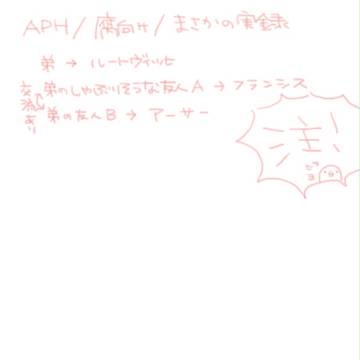 APH/腐向け/まさかの実録
弟→ルートヴィッヒ
弟のしゃぶりそうな友人A→フランシス
交流あり
弟の友人B→アーサー
主